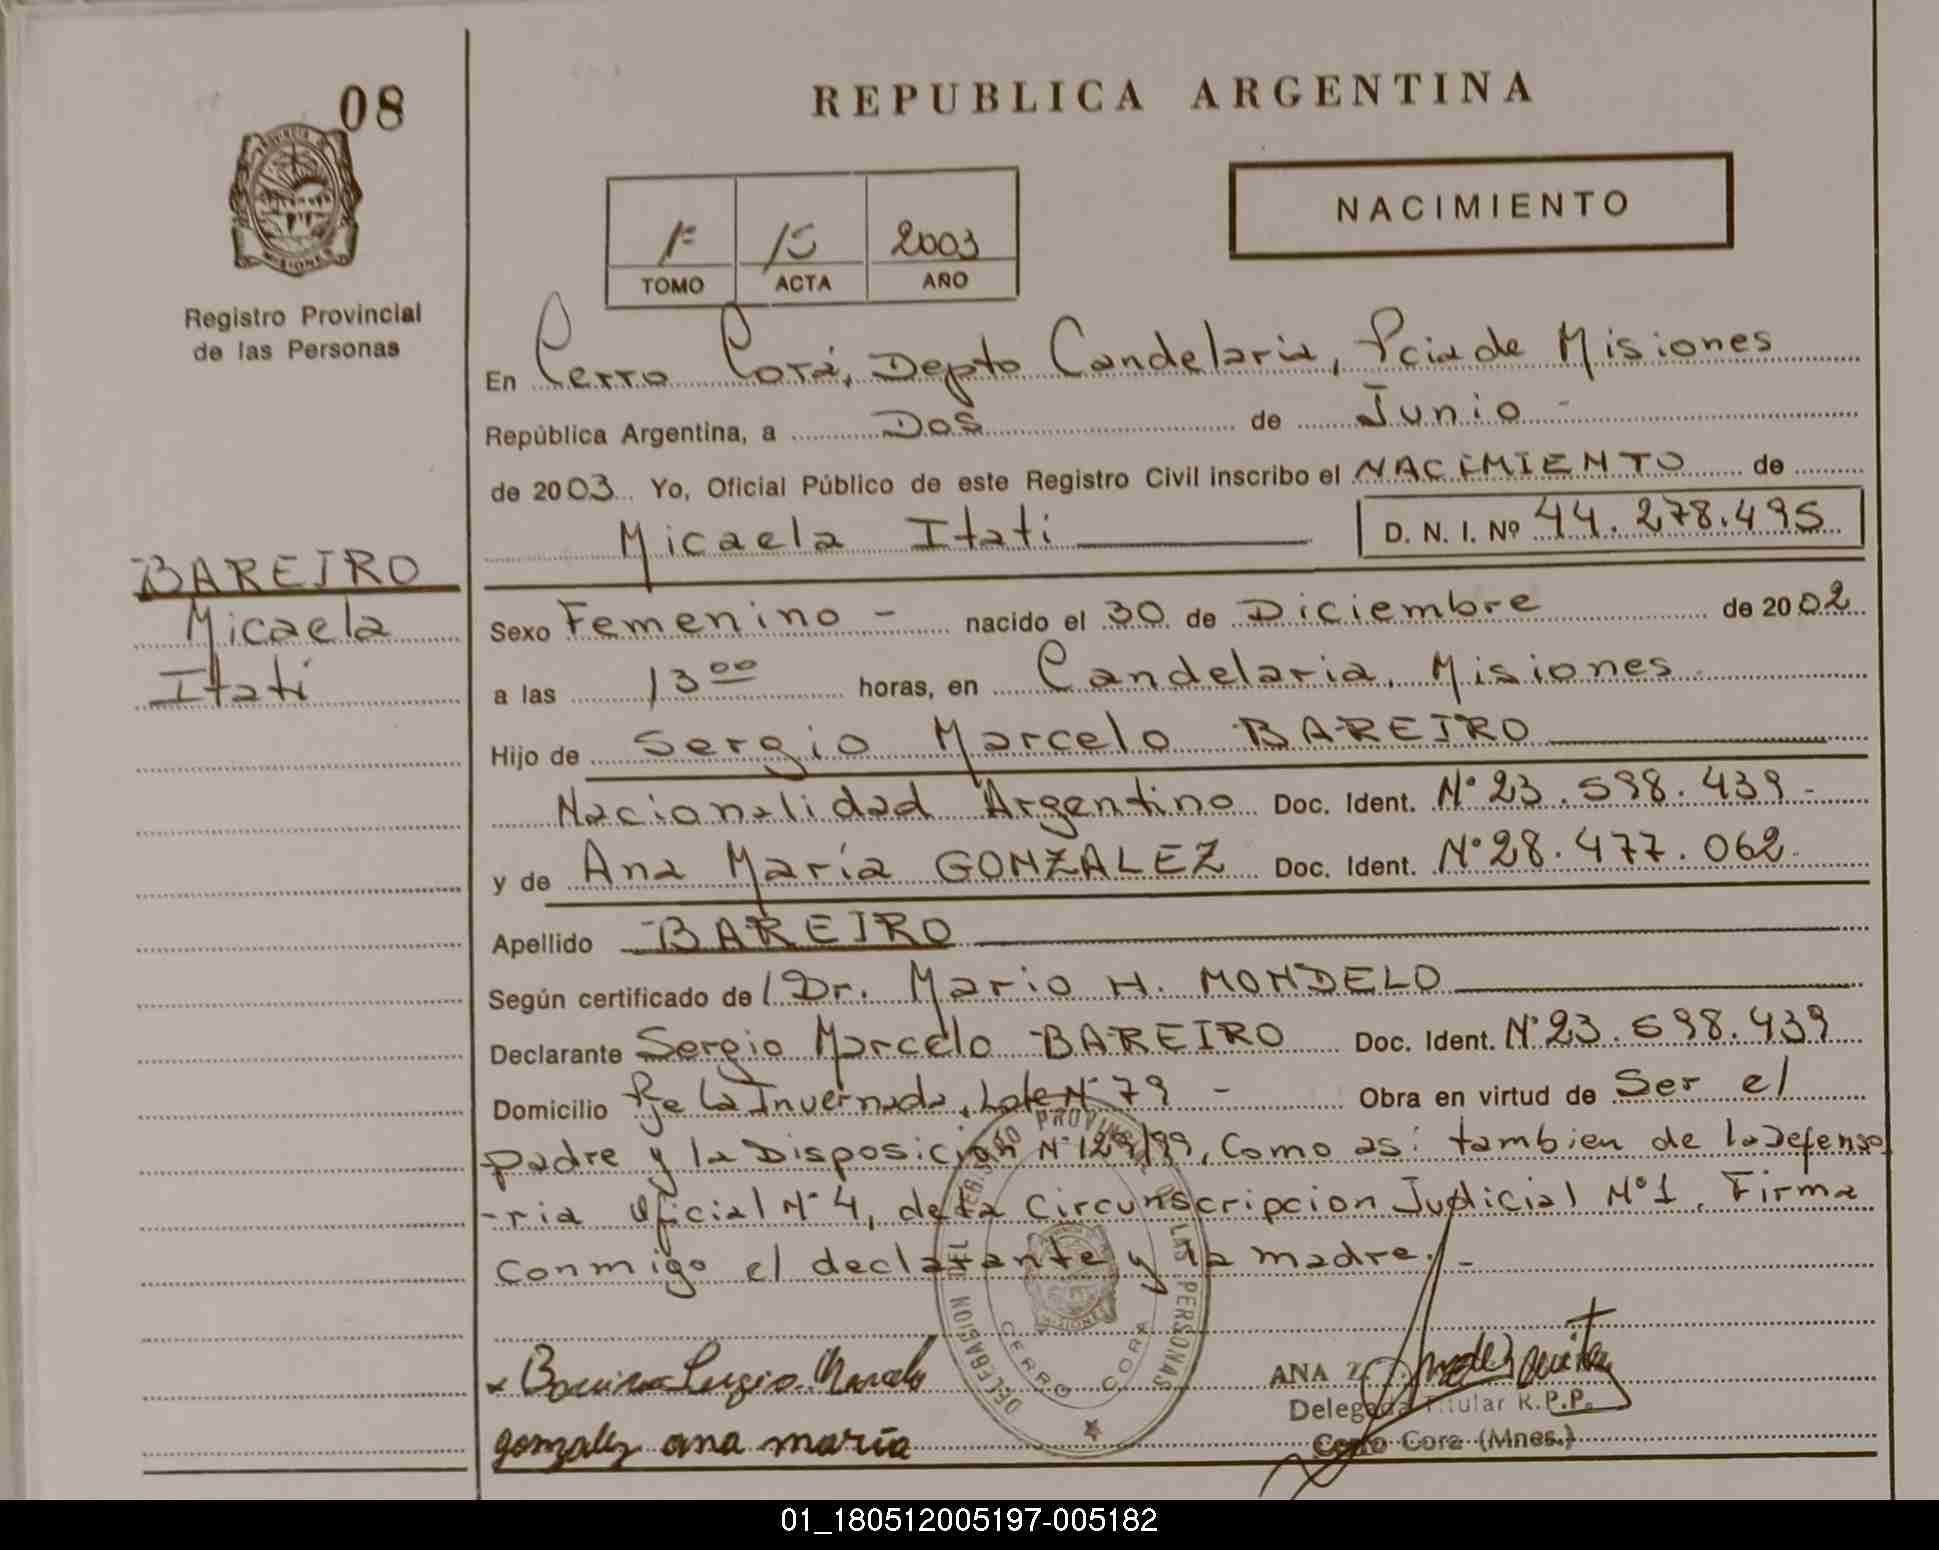 08
REPUBLICA ARGENTINA
NACIMIENTO
15 2003
TOMO ACTA AÑO
Registro Provincial
de las Personas
En Cerro Corá, Depto Candelaria, Pcia de Misiones
República Argentina, a Dos de Junio -
de 2003 Yo, Oficial Público de este Registro Civil inscribo el NACIMIENTO de
Micaela Itati D. N. I. Nº 44.278.495
BAREIRO
Micaela
Itati
Sexo Femenino - nacido el 30 de Diciembre de 2002
a las 13 00 horas, en Candelaria, Misiones
Hijo de Sergio Marcelo BAREIRO
Nacionalidad Argentino Doc. Ident. Nº 23.598.439 -
y de Ana María GONZALEZ Doc. Ident. Nº 28.477.062
Apellido BAREIRO
Según certificado de Dr. Mario H. MONDELO
Declarante Sergio Marcelo BAREIRO Doc. Ident. Nº 23.598.439
Domicilio Pje La Invernada, Lote Nº 79 - Obra en virtud de Ser el
padre y la Disposición Nº 129/99, Como asi tambien de la Defenso
-ria Oficial Nº 4, de la Circunscripcion Judicial Nº 1. Firma
conmigo el declarante y la madre. -
DELEGACION DEL REGISTRO PROVINCIAL DE LAS PERSONAS
CERRO CORA
x Bareiro Sergio Marcelo
gonzalez ana maría
ANA
Delegada Titular R.P.P.
Cerro Cora (Mnes.)
01_180512005197-005182